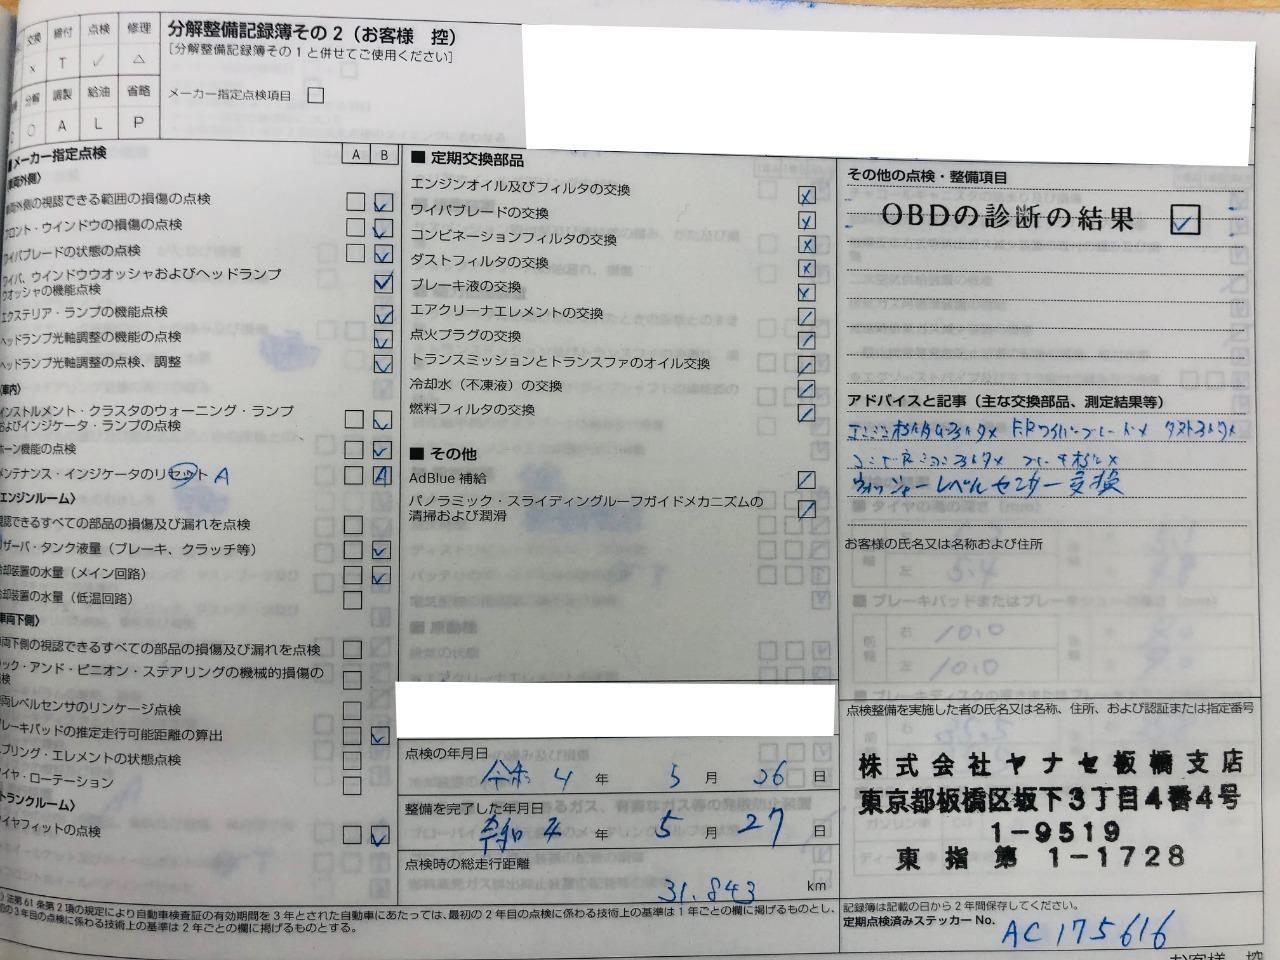 交換 締付 点検 修理
× T ✓ △
分解 調製 給油 省略
○ A L P
分解整備記録簿その2（お客様 控）
[分解整備記録簿その1と併せてご使用ください]
メーカー指定点検項目 □
■メーカー指定点検 A B
車両外側〉
車両外側の視認できる範囲の損傷の点検
フロント・ウインドウの損傷の点検
ワイパブレードの状態の点検
ワイパ、ウインドウウオッシャおよびヘッドランプ
ウオッシャの機能点検
エクステリア・ランプの機能点検
ヘッドランプ光軸調整の機能の点検
ヘッドランプ光軸調整の点検、調整
車内〉
インストルメント・クラスタのウォーニング・ランプ
およびインジケータ・ランプの点検
ホーン機能の点検
メンテナンス・インジケータのリセット A A
エンジンルーム〉
視認できるすべての部品の損傷及び漏れを点検
リザーバ・タンク液量（ブレーキ、クラッチ等）
冷却装置の水量（メイン回路）
冷却装置の水量（低温回路）
車両下側〉
車両下側の視認できるすべての部品の損傷及び漏れを点検
ラック・アンド・ピニオン・ステアリングの機械的損傷の
点検
車両レベルセンサのリンケージ点検
ブレーキパッドの推定走行可能距離の算出
スプリング・エレメントの状態点検
タイヤ・ローテーション
トランクルーム〉
タイヤフィットの点検
■ 定期交換部品
エンジンオイル及びフィルタの交換 ×
ワイパブレードの交換 ×
コンビネーションフィルタの交換 ×
ダストフィルタの交換 ×
ブレーキ液の交換 ×
エアクリーナエレメントの交換
点火プラグの交換
トランスミッションとトランスファのオイル交換
冷却水（不凍液）の交換
燃料フィルタの交換
■ その他
AdBlue 補給
パノラミック・スライディングルーフガイドメカニズムの
清掃および潤滑
点検の年月日
令和 4 年 5 月 26 日
整備を完了した年月日
令和 4 年 5 月 27 日
点検時の総走行距離
31.843 km
その他の点検・整備項目
OBDの診断の結果 ✓
アドバイスと記事（主な交換部品、測定結果等）
ウォッシャーレベルセンサー交換
お客様の氏名又は名称および住所
点検整備を実施した者の氏名又は名称、住所、および認証または指定番号
株式会社ヤナセ板橋支店
東京都板橋区坂下3丁目4番4号
1-9519
東指第 1-1728
記録簿は記載の日から2年間保存してください。
定期点検済みステッカーNo. AC175616
法第61条第2項の規定により自動車検査証の有効期間を3年とされた自動車にあたっては、最初の2年目の点検に係わる技術上の基準は1年ごとの欄に掲げるものとし、
初の3年目の点検に係わる技術上の基準は2年ごとの欄に掲げるものとする。
お客様 控